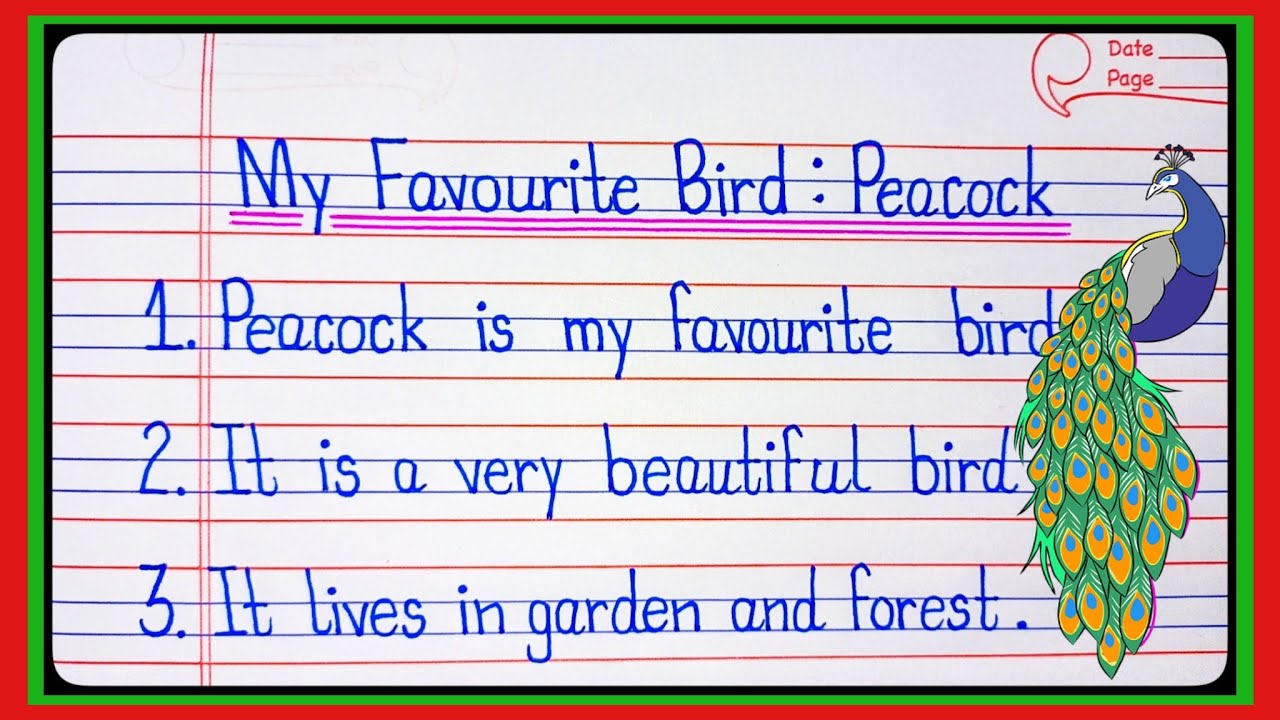 Date
Page
My Favourite Bird : Peacock
1. Peacock is my favourite bird
2. It is a very beautiful bird
3. It lives in garden and forest.